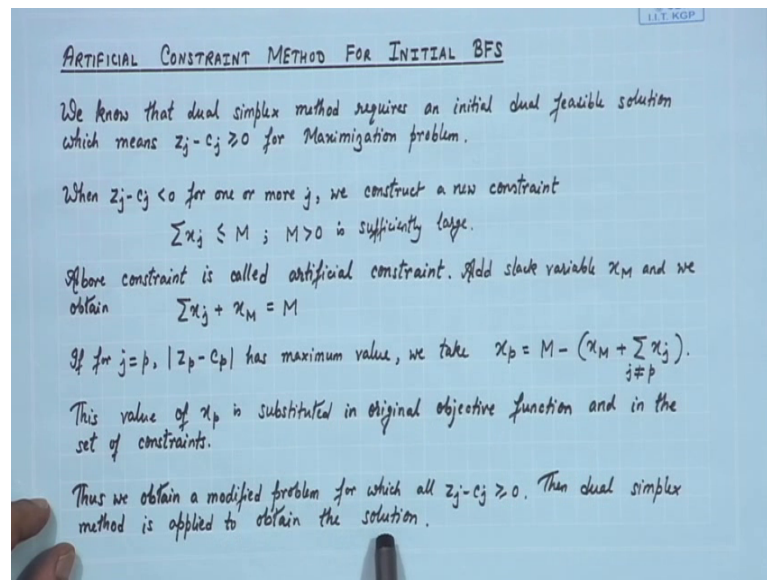 I.I.T. KGP
ARTIFICIAL CONSTRAINT METHOD FOR INITIAL BFS
We know that dual simplex method requires an initial dual feasible solution
which means zj - cj ≥ 0 for Maximization problem.
When zj - cj < 0 for one or more j, we construct a new constraint
∑xj ≤ M ; M>0 is sufficiently large.
Above constraint is called artificial constraint. Add slack variable xM and we
obtain ∑xj + xM = M
If for j=p, |zp - cp| has maximum value, we take xp = M - (xM + ∑xj).
j≠p
This value of xp is substituted in original objective function and in the
set of constraints.
Thus we obtain a modified problem for which all zj - cj ≥ 0. Then dual simplex
method is applied to obtain the solution.